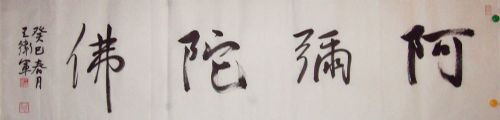 阿彌陀佛
癸巳春月
王衛軍